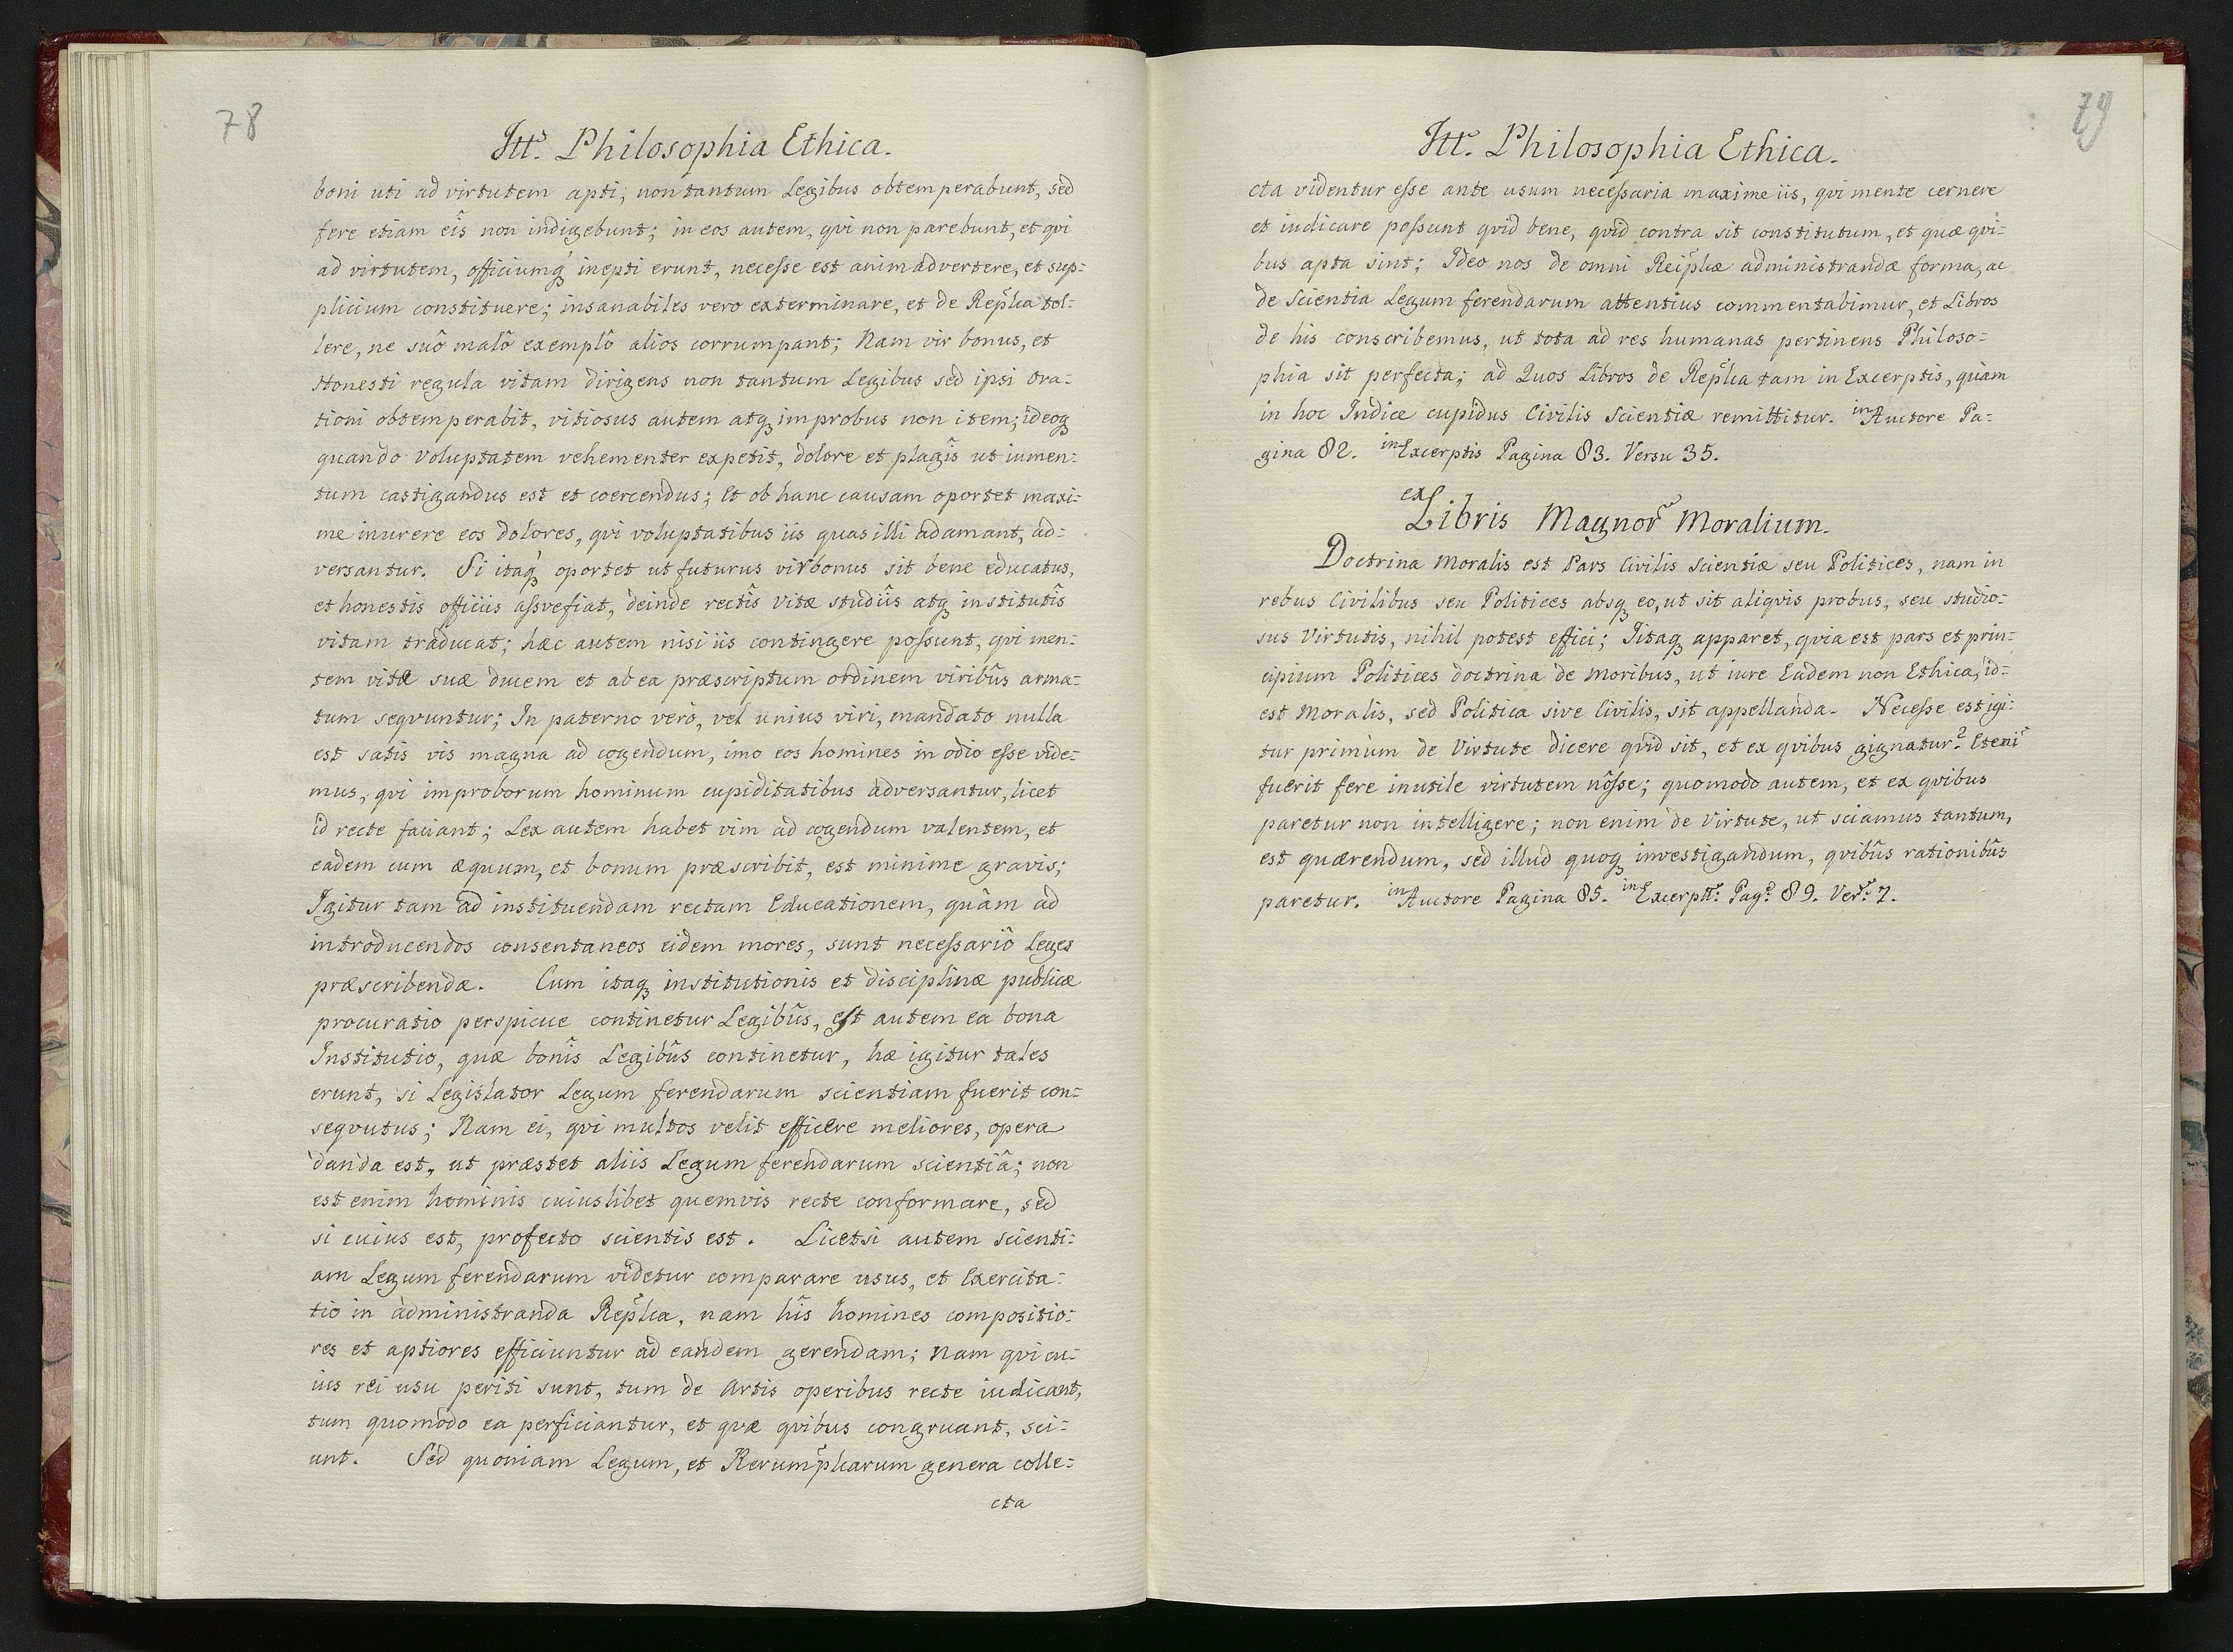 78
Itt. Philosophia Ethica.
boni uti ad virtutem apti, non tantum Legibus obtemperabunt, sed
fere etiam eîs non indigebunt; in eos autem, qvi non parebunt, et qvi
ad virtutem, officiumq́ inepti erunt, necesse est animadvertere, et sup-
plicium constituere; insanabiles vero exterminare, et de Replca tol-
lere, ne suô malô exemplô alios corrumpant; Nam vir bonus, et
Honesti regula vitam dirigens non tantum Legibus sed ipsi Ora-
tioni obtemperabit, vitiosus autem atq improbus non item; ideoq
quando Voluptatem vehementer expetit, dolore et plagîs ut iumen-
tum castigandus est et coercendus; Et ob hanc causam oportet maxi-
me inurere eos dolores, qvi voluptatibus iis quas illi adamant, ad-
versantur. Si itaq́ oportet ut futurus vir bonus sit bene educatus,
et honestis officiis assvefiat, deinde rectîs Vitæ studiîs atq institutîs
vitam traducat; hæc autem nisi iis contingere possunt, qvi men-
tem vitæ suæ ducem et ab ea præscriptum ordinem viribûs arma-
tum seqvuntur; In paterno verò, vel unius viri, mandato nulla
est satis vis magna ad cogendum, imo eos homines in odio esse vide-
mus, qvi improborum hominum cupiditatibus adversantur, licet
id recte faciant; Lex autem habet vim ad cogendum valentem, et
eadem cum æquum, et bonum præscribit, est minime gravis;
Igitur tam ad instituendam rectam Educationem, quàm ad
introducendos consentaneos eidem mores, sunt necessariô Leges
præscribendæ. Cum itaq institutionis et disciplinæ publicæ
procuratio perspicue continetur Legibûs, est autem ea bona
Institutio, quæ bonîs Legibûs continetur, hæ igitur tales
erunt, si Legislator Legum ferendarum scientiam fuerit con-
seqvutus; Nam ei, qvi multos velit efficere meliores, opera
danda est, ut præstet aliis Legum ferendarum scientiâ; non
est enim hominis cuiuslibet quemvis recte conformare, sed
si cuius est, profecto scientis est. Licetsi autem scienti-
am Legum ferendarum videtur comparare usus, et Exercita-
tio in administranda Replca, nam hîs homines compositio-
res et aptiores efficiuntur ad eandem gerendam; Nam qvi cu-
ius rei usu periti sunt, tum de Artis operibus recte iudicant,
tum quomodo ea perficiantur, et qvæ qvibus congruant, sci-
unt. Sed quoniam Legum, et Rerumplcarum genera colle-
cta
79
Itt. Philosophia Ethica.
cta videntur esse ante usum necessaria maxime iis, qvi mente cernere
et iudicare possunt qvid bene, qvid contra sit constitutum, et quæ qvi-
bus apta sint; Ideo nos de omni Reiplcæ administrandæ forma, ac
de Scientia Legum ferendarum attentius commentabimur, et Libros
de his conscribemus, ut tota ad res humanas pertinens Philoso-
phia sit perfecta; ad Quos Libros de Replca tam in Excerptis, quàm
in hoc Indice cupidus Civilis Scientiæ remittitur. in Auctore Pa-
gina 82. in Excerptis Pagina 83. Versu 35.
ex Libris Magnor Moralium.
Doctrina Moralis est Pars Civilis Scientiæ seu Politices, nam in
rebus Civilibus seu Politices absq eo, ut sit aliqvis probus, seu studio-
sus Virtutis, nihil potest effici; Itaq apparet, qvia est pars et prin-
cipium Politices doctrina de Moribus, ut iure Eadem non Ethica, id-
est Moralis, sed Politica sive Civilis, sit appellanda. Necesse est igi-
tur primùm de Virtute dicere qvid sit, et ex qvibus gignatur? Eteni
fuerit fere inutile virtutem nôsse; quomodo autem, et ex qvibus
paretur non intelligere; non enim de Virtute, ut sciamus tantum,
est quærendum, sed illud quoq investigandum, qvibûs rationibûs
paretur. in Auctore Pagina 85. in Excerptt. Pag. 89. Ver. 7.